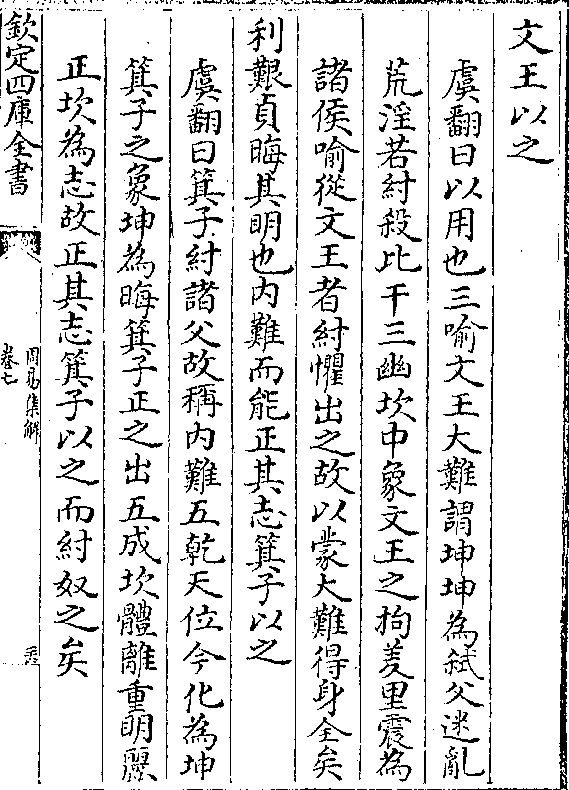 文王以之
虞翻曰以用也三喻文王大難謂坤坤為弑父迷亂
荒淫若紂殺比干三幽坎中象文王之拘羑里震為
諸侯喻從文王者紂懼出之故以蒙大難得身全矣
利艱貞晦其明也内難而能正其志箕子以之
虞翻曰箕子紂諸父故稱内難五乾天位今化為坤
箕子之象坤為晦箕子正之出五成坎體離重明麗
正坎為志故正其志箕子以之而紂奴之矣
欽定四庫全書
周易集解
卷七